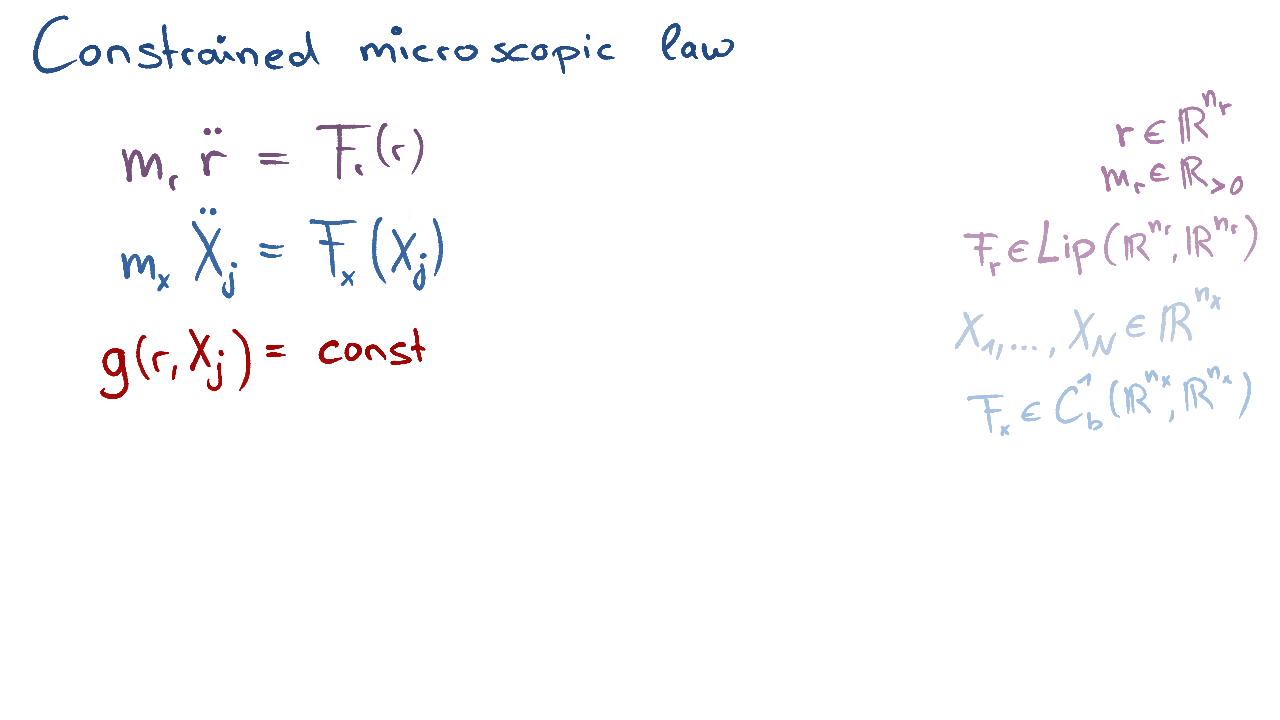 Constrained microscopic law
m_r r̈ = F_r(r)
m_x Ẍ_j = F_x(X_j)
g(r, X_j) = const
r ∈ ℝ^{n_r}
m_r ∈ ℝ_{>0}
F_r ∈ Lip(ℝ^{n_r}, ℝ^{n_r})
X_1, ..., X_N ∈ ℝ^{n_x}
F_x ∈ C_b^1(ℝ^{n_x}, ℝ^{n_x})